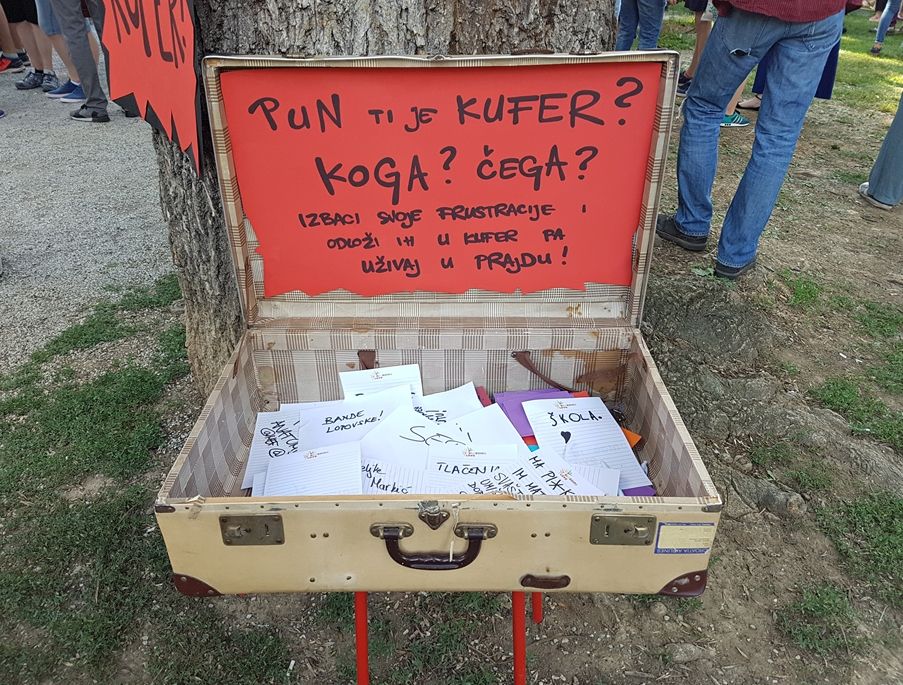 KUFER!
PUN TI JE KUFER?
KOGA? ČEGA?
IZBACI SVOJE FRUSTRACIJE I
ODLOŽI IH U KUFER PA
UŽIVAJ U PRAJDU!
BANDE
LOPOVSKE!
ŠKOLA.
TLAČENJE
Željke
Markić
MA
CROATIA AIRLINES